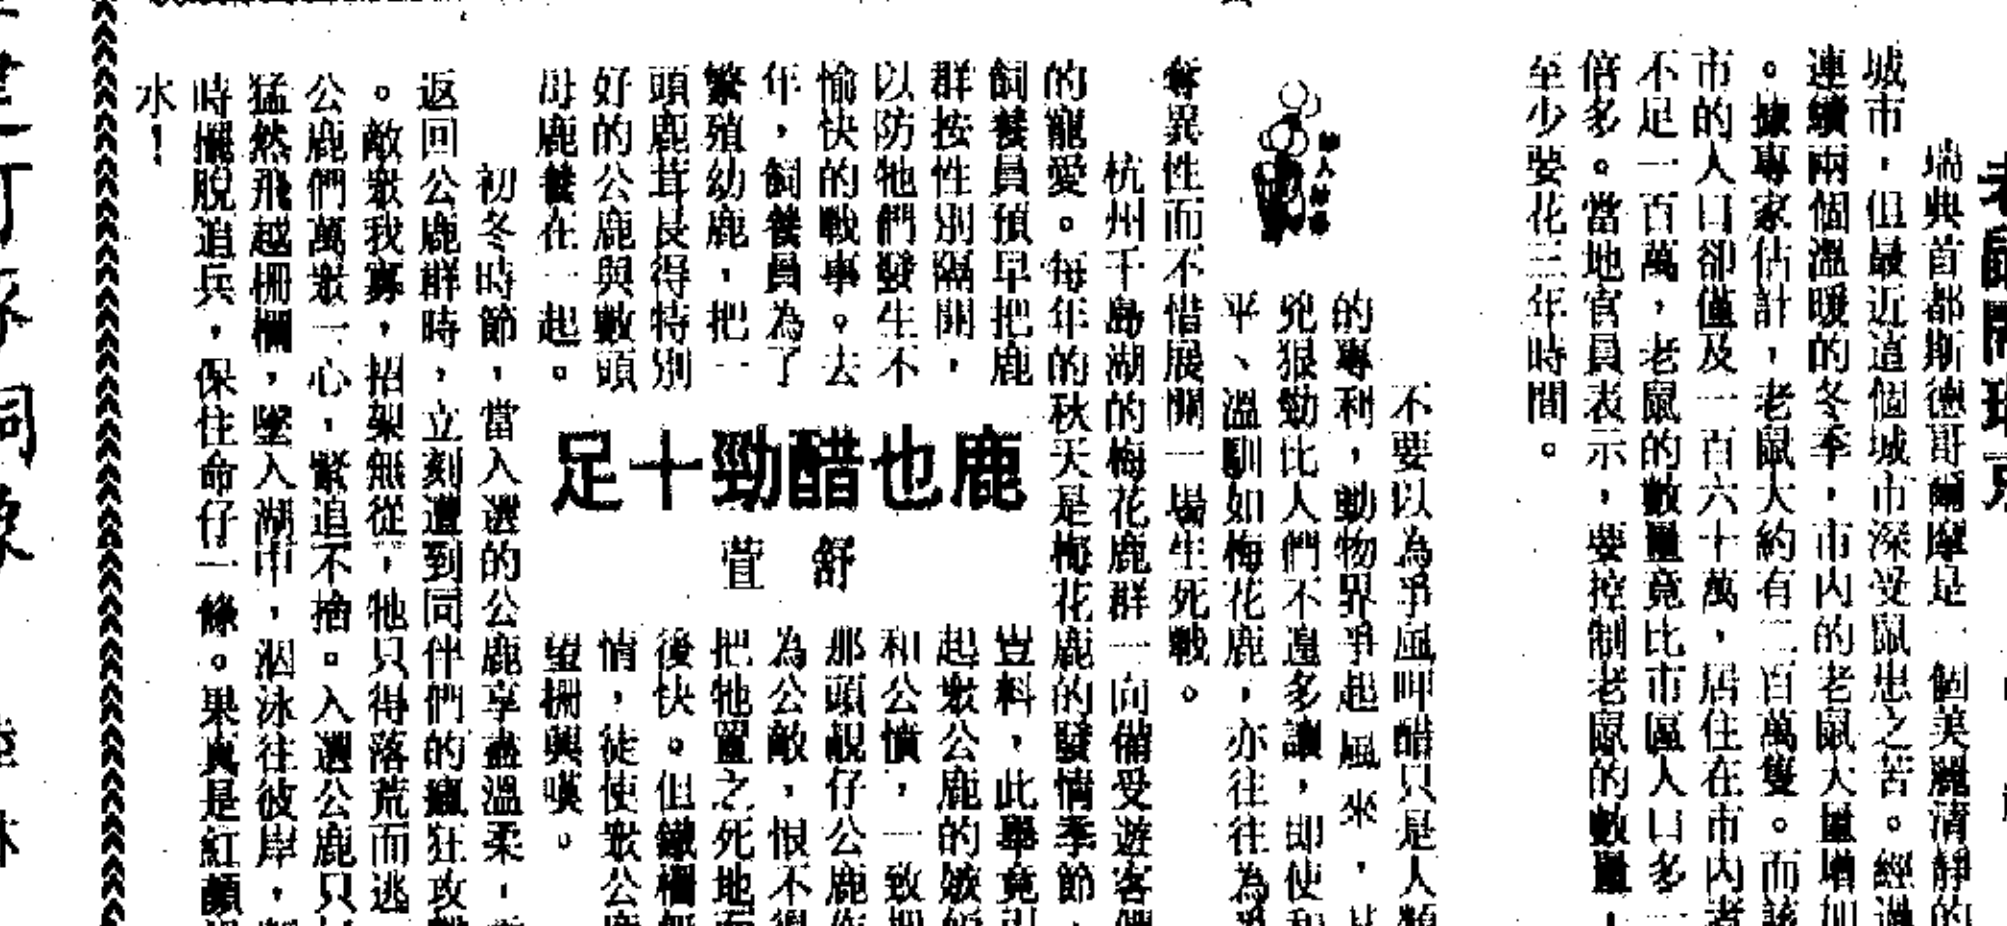 瑞典首都斯德哥爾摩是一個美麗清靜的
城市，但最近這個城市深受鼠患之苦。經過
連續兩個溫暖的冬季，市內的老鼠大量增加
。據專家估計，老鼠大約有二百萬隻。而該
市的人口卻僅及一百六十萬，居住在市內者
不足一百萬，老鼠的數量竟比市區人口多一
倍多。當地官員表示，要控制老鼠的數量，
至少要花三年時間。
鹿也醋勁十足
舒萱
不要以為爭風呷醋只是人類
的專利，動物界爭起風來，其
兇狠勁比人們不遑多讓，即使和
平、溫馴如梅花鹿，亦往往為爭
奪異性而不惜展開一場生死戰。
杭州千島湖的梅花鹿群一向備受遊客
的寵愛。每年的秋天是梅花鹿的發情季節，
飼養員預早把鹿
群按性別隔開，
以防牠們發生不
愉快的戰事。去
年，飼養員為了
繁殖幼鹿，把一
頭鹿茸長得特別
好的公鹿與數頭
母鹿養在一起。
豈料，此舉竟引
起眾公鹿的嫉妒
和公憤，一致把
那頭靚仔公鹿作
為公敵，恨不得
把牠置之死地而
後快。但鐵柵無
情，徒使眾公鹿
望柵興嘆。
初冬時節，當入選的公鹿享盡溫柔，
返回公鹿群時，立刻遭到同伴們的瘋狂攻擊
。敵眾我寡，招架無從，牠只得落荒而逃
公鹿們萬眾一心，緊追不捨。入選公鹿只
猛然飛越柵欄，墜入湖中，泅泳往彼岸，
時擺脫追兵，保住命仔一條。果真是紅顏
水！